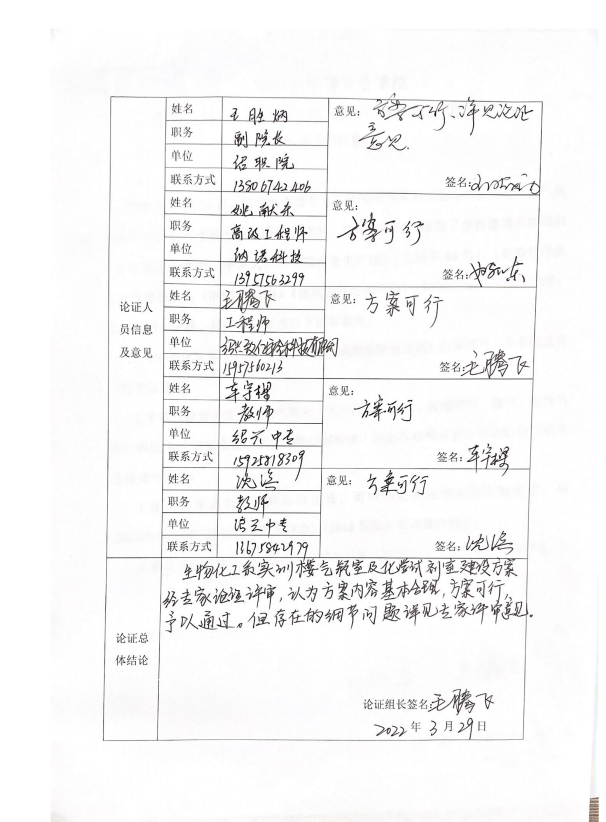 姓名 王胜炳 意见：方案可行、详见论证
职务 副院长 意见.
单位 绍职院
联系方式 13806742406 签名:
姓名 姚献东 意见：
职务 高改工程师 方案可行
单位 纳诺科技
联系方式 13957563299 签名:
论证人
员信息
及意见
姓名 王腾飞 意见: 方案可行
职务 工程师
单位
联系方式 15957560213 签名:王腾飞
姓名 意见:
职务 教师 方案可行
单位 绍兴中专
联系方式 15925818309 签名:
姓名 沈滨 意见: 方案可行
职务 教师
单位 绍兴中专
联系方式 13675842979 签名:沈滨
论证总
体结论
生物化工系实训楼气瓶室及化学试剂室建设方案
经专家论证评审，认为方案内容基本合理，方案可行，
予以通过。但存在的细节问题详见专家评审意见。
论证组长签名:王腾飞
2022年3月29日